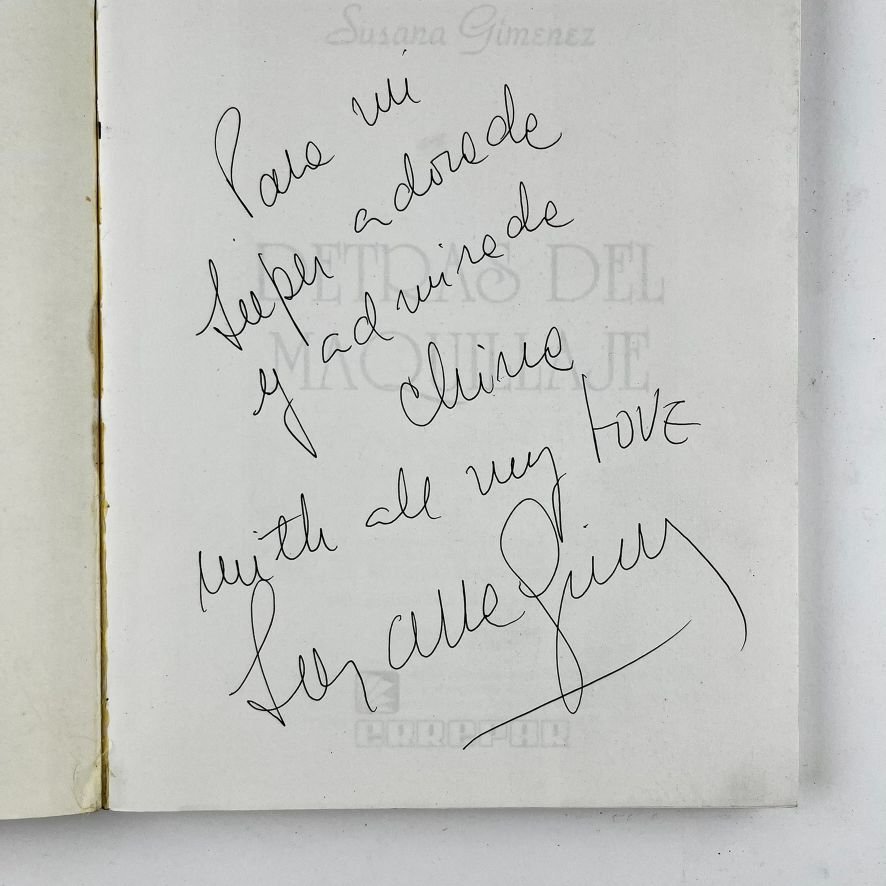 Susana Gimenez
Para mi
super adorada
y admirada
DETRAS DEL
china
MAQUILLAJE
with all my LOVE
Susana Gimenez
ERREPAR